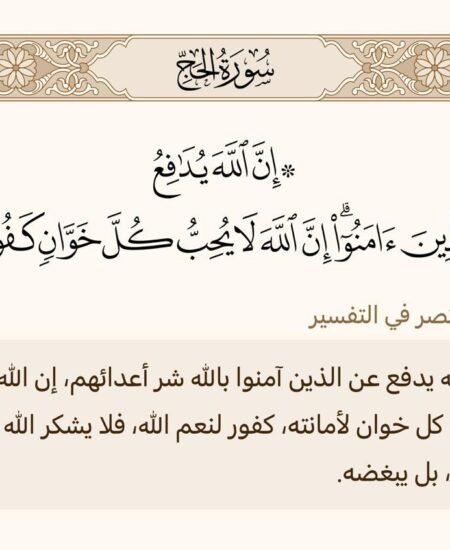 سُورَةُ الحَجِّ
۞ إِنَّ ٱللَّهَ يُدَٰفِعُ
ءَامَنُوٓا۟ۗ إِنَّ ٱللَّهَ لَا يُحِبُّ كُلَّ خَوَّانٍ
في التفسير
يدفع عن الذين آمنوا بالله شر أعدائهم، إن الله
كل خوان لأمانته، كفور لنعم الله، فلا يشكر الله
، بل يبغضه.